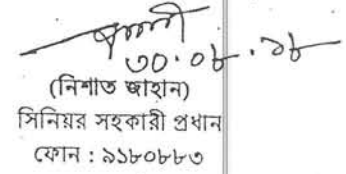 ৩০.০৮.১৮
(নিশাত জাহান)
সিনিয়র সহকারী প্রধান
ফোন : ৯১৮০৮৮৩